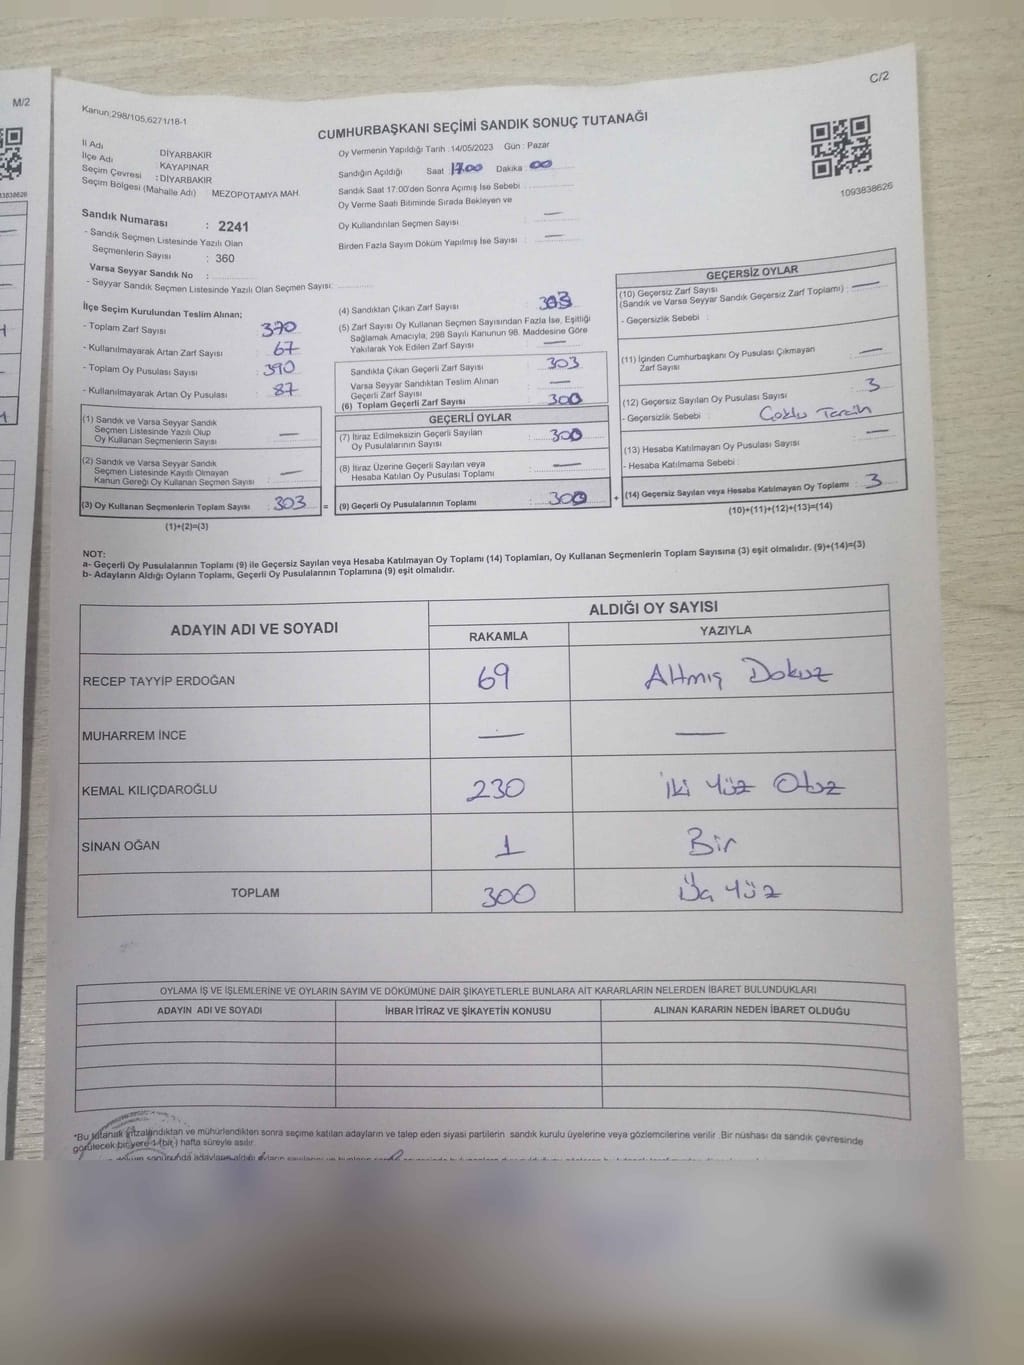 M/2
C/2
Kanun:298/105,6271/18-1
CUMHURBAŞKANI SEÇİMİ SANDIK SONUÇ TUTANAĞI
İl Adı DİYARBAKIR
İlçe Adı KAYAPINAR
Seçim Çevresi : DİYARBAKIR
Seçim Bölgesi (Mahalle Adı) MEZOPOTAMYA MAH.
Oy Vermenin Yapıldığı Tarih : 14/05/2023 Gün : Pazar
Sandığın Açıldığı Saat 17.00 Dakika : 00
Sandık Saat 17:00'den Sonra Açımış İse Sebebi :
Oy Verme Saati Bitiminde Sırada Bekleyen ve
Oy Kullandırılan Seçmen Sayısı : —
Birden Fazla Sayım Döküm Yapılmış İse Sayısı : —
1093838626
Sandık Numarası : 2241
- Sandık Seçmen Listesinde Yazılı Olan
Seçmenlerin Sayısı : 360
Varsa Seyyar Sandık No :
- Seyyar Sandık Seçmen Listesinde Yazılı Olan Seçmen Sayısı:
İlçe Seçim Kurulundan Teslim Alınan;
- Toplam Zarf Sayısı : 370
- Kullanılmayarak Artan Zarf Sayısı : 67
- Toplam Oy Pusulası Sayısı : 390
- Kullanılmayarak Artan Oy Pusulası : 87
(1) Sandık ve Varsa Seyyar Sandık
Seçmen Listesinde Yazılı Olup
Oy Kullanan Seçmenlerin Sayısı : —
(2) Sandık ve Varsa Seyyar Sandık
Seçmen Listesinde Kayıtlı Olmayan
Kanun Gereği Oy Kullanan Seçmen Sayısı : —
(3) Oy Kullanan Seçmenlerin Toplam Sayısı : 303 =
(1)+(2)=(3)
(4) Sandıktan Çıkan Zarf Sayısı : 303
(5) Zarf Sayısı Oy Kullanan Seçmen Sayısından Fazla İse, Eşitliği
Sağlamak Amacıyla; 298 Sayılı Kanunun 98. Maddesine Göre
Yakılarak Yok Edilen Zarf Sayısı : —
Sandıkta Çıkan Geçerli Zarf Sayısı : 303
Varsa Seyyar Sandıktan Teslim Alınan
Geçerli Zarf Sayısı : —
(6) Toplam Geçerli Zarf Sayısı : 300
GEÇERLİ OYLAR
(7) İtiraz Edilmeksizin Geçerli Sayılan
Oy Pusulalarının Sayısı : 300
(8) İtiraz Üzerine Geçerli Sayılan veya
Hesaba Katılan Oy Pusulası Toplamı : —
(9) Geçerli Oy Pusulalarının Toplamı : 300 +
GEÇERSİZ OYLAR
(10) Geçersiz Zarf Sayısı
(Sandık ve Varsa Seyyar Sandık Geçersiz Zarf Toplamı) : —
- Geçersizlik Sebebi :
(11) İçinden Cumhurbaşkanı Oy Pusulası Çıkmayan
Zarf Sayısı : —
(12) Geçersiz Sayılan Oy Pusulası Sayısı : 3
- Geçersizlik Sebebi : Çoklu Tercih
(13) Hesaba Katılmayan Oy Pusulası Sayısı : —
- Hesaba Katılmama Sebebi :
(14) Geçersiz Sayılan veya Hesaba Katılmayan Oy Toplamı : 3
(10)+(11)+(12)+(13)=(14)
NOT:
a- Geçerli Oy Pusulalarının Toplamı (9) ile Geçersiz Sayılan veya Hesaba Katılmayan Oy Toplamı (14) Toplamları, Oy Kullanan Seçmenlerin Toplam Sayısına (3) eşit olmalıdır. (9)+(14)=(3)
b- Adayların Aldığı Oyların Toplamı, Geçerli Oy Pusulalarının Toplamına (9) eşit olmalıdır.
ADAYIN ADI VE SOYADI
ALDIĞI OY SAYISI
RAKAMLA YAZIYLA
RECEP TAYYİP ERDOĞAN 69 Altmış Dokuz
MUHARREM İNCE — —
KEMAL KILIÇDAROĞLU 230 İki Yüz Otuz
SİNAN OĞAN 1 Bir
TOPLAM 300 Üç Yüz
OYLAMA İŞ VE İŞLEMLERİNE VE OYLARIN SAYIM VE DÖKÜMÜNE DAİR ŞİKAYETLERLE BUNLARA AİT KARARLARIN NELERDEN İBARET BULUNDUKLARI
ADAYIN ADI VE SOYADI İHBAR İTİRAZ VE ŞİKAYETİN KONUSU ALINAN KARARIN NEDEN İBARET OLDUĞU
*Bu tutanak imzalandıktan ve mühürlendikten sonra seçime katılan adayların ve talep eden siyasi partilerin sandık kurulu üyelerine veya gözlemcilerine verilir. Bir nüshası da sandık çevresinde
görülecek bir yere 1 (bir) hafta süreyle asılır.